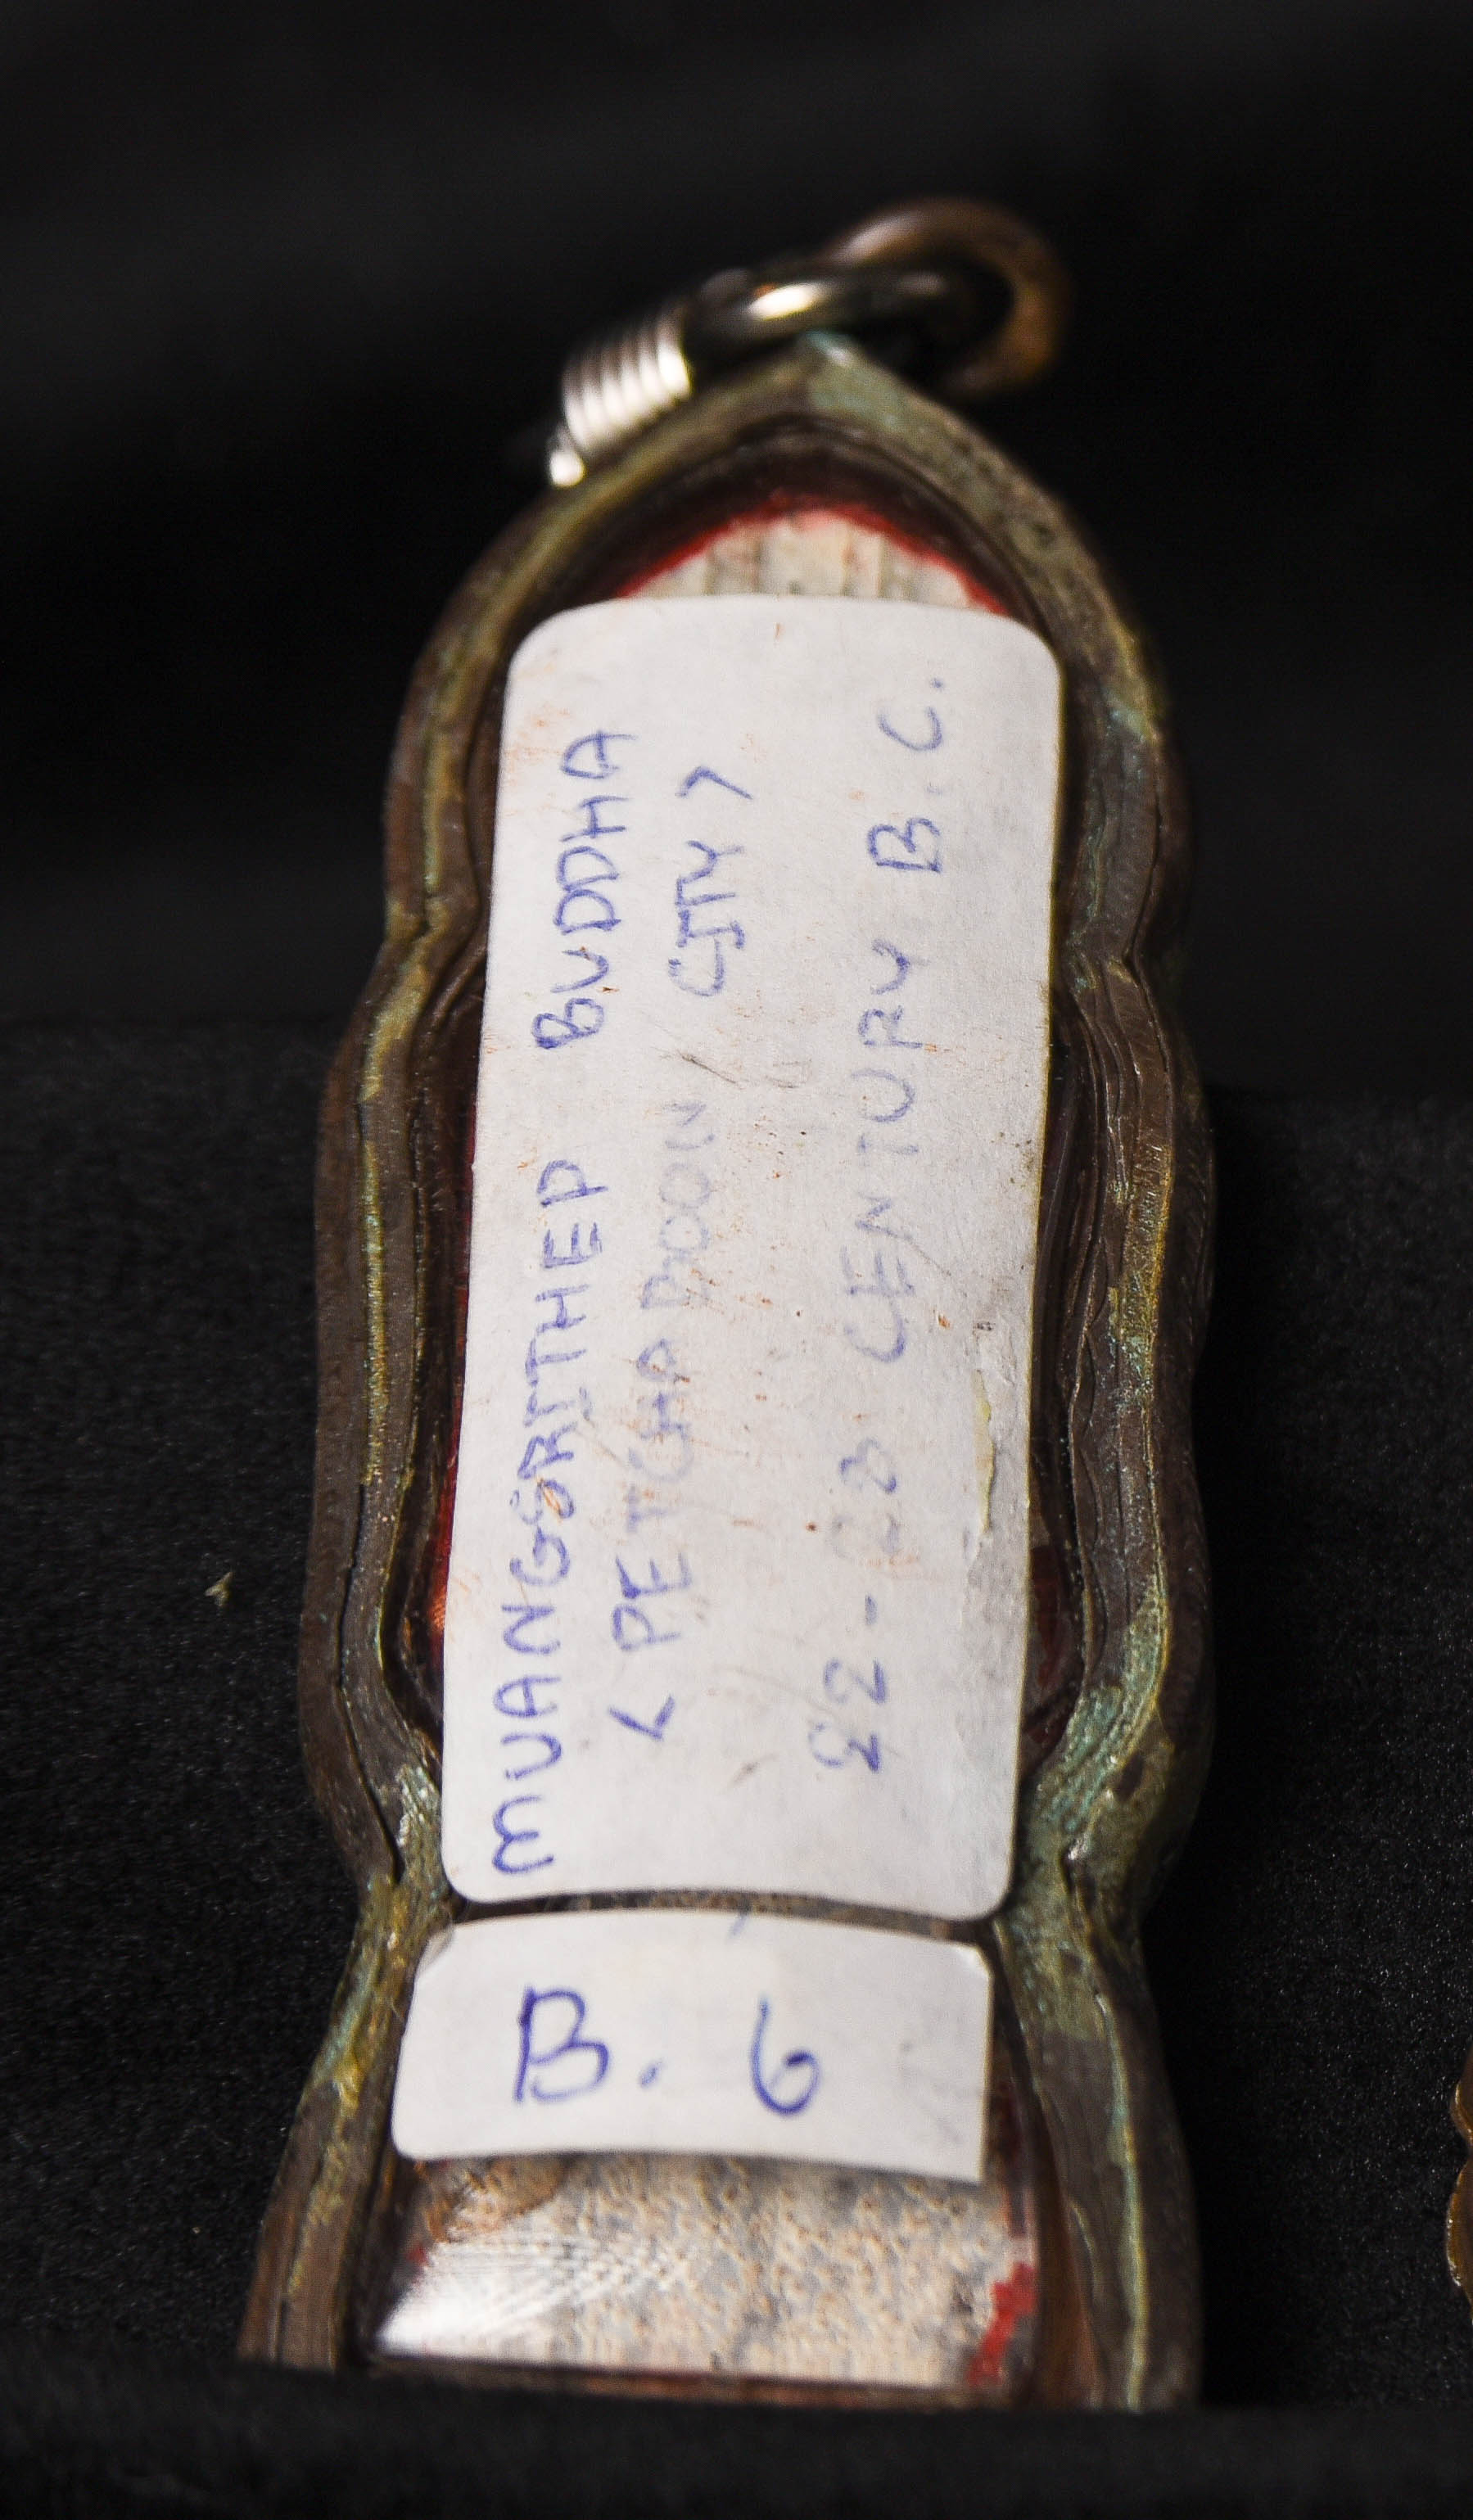 MUANGSRITHEP BUDDHA
< PETCHABOON CITY >
22 - 23 CENTURY B.C.
B. 6